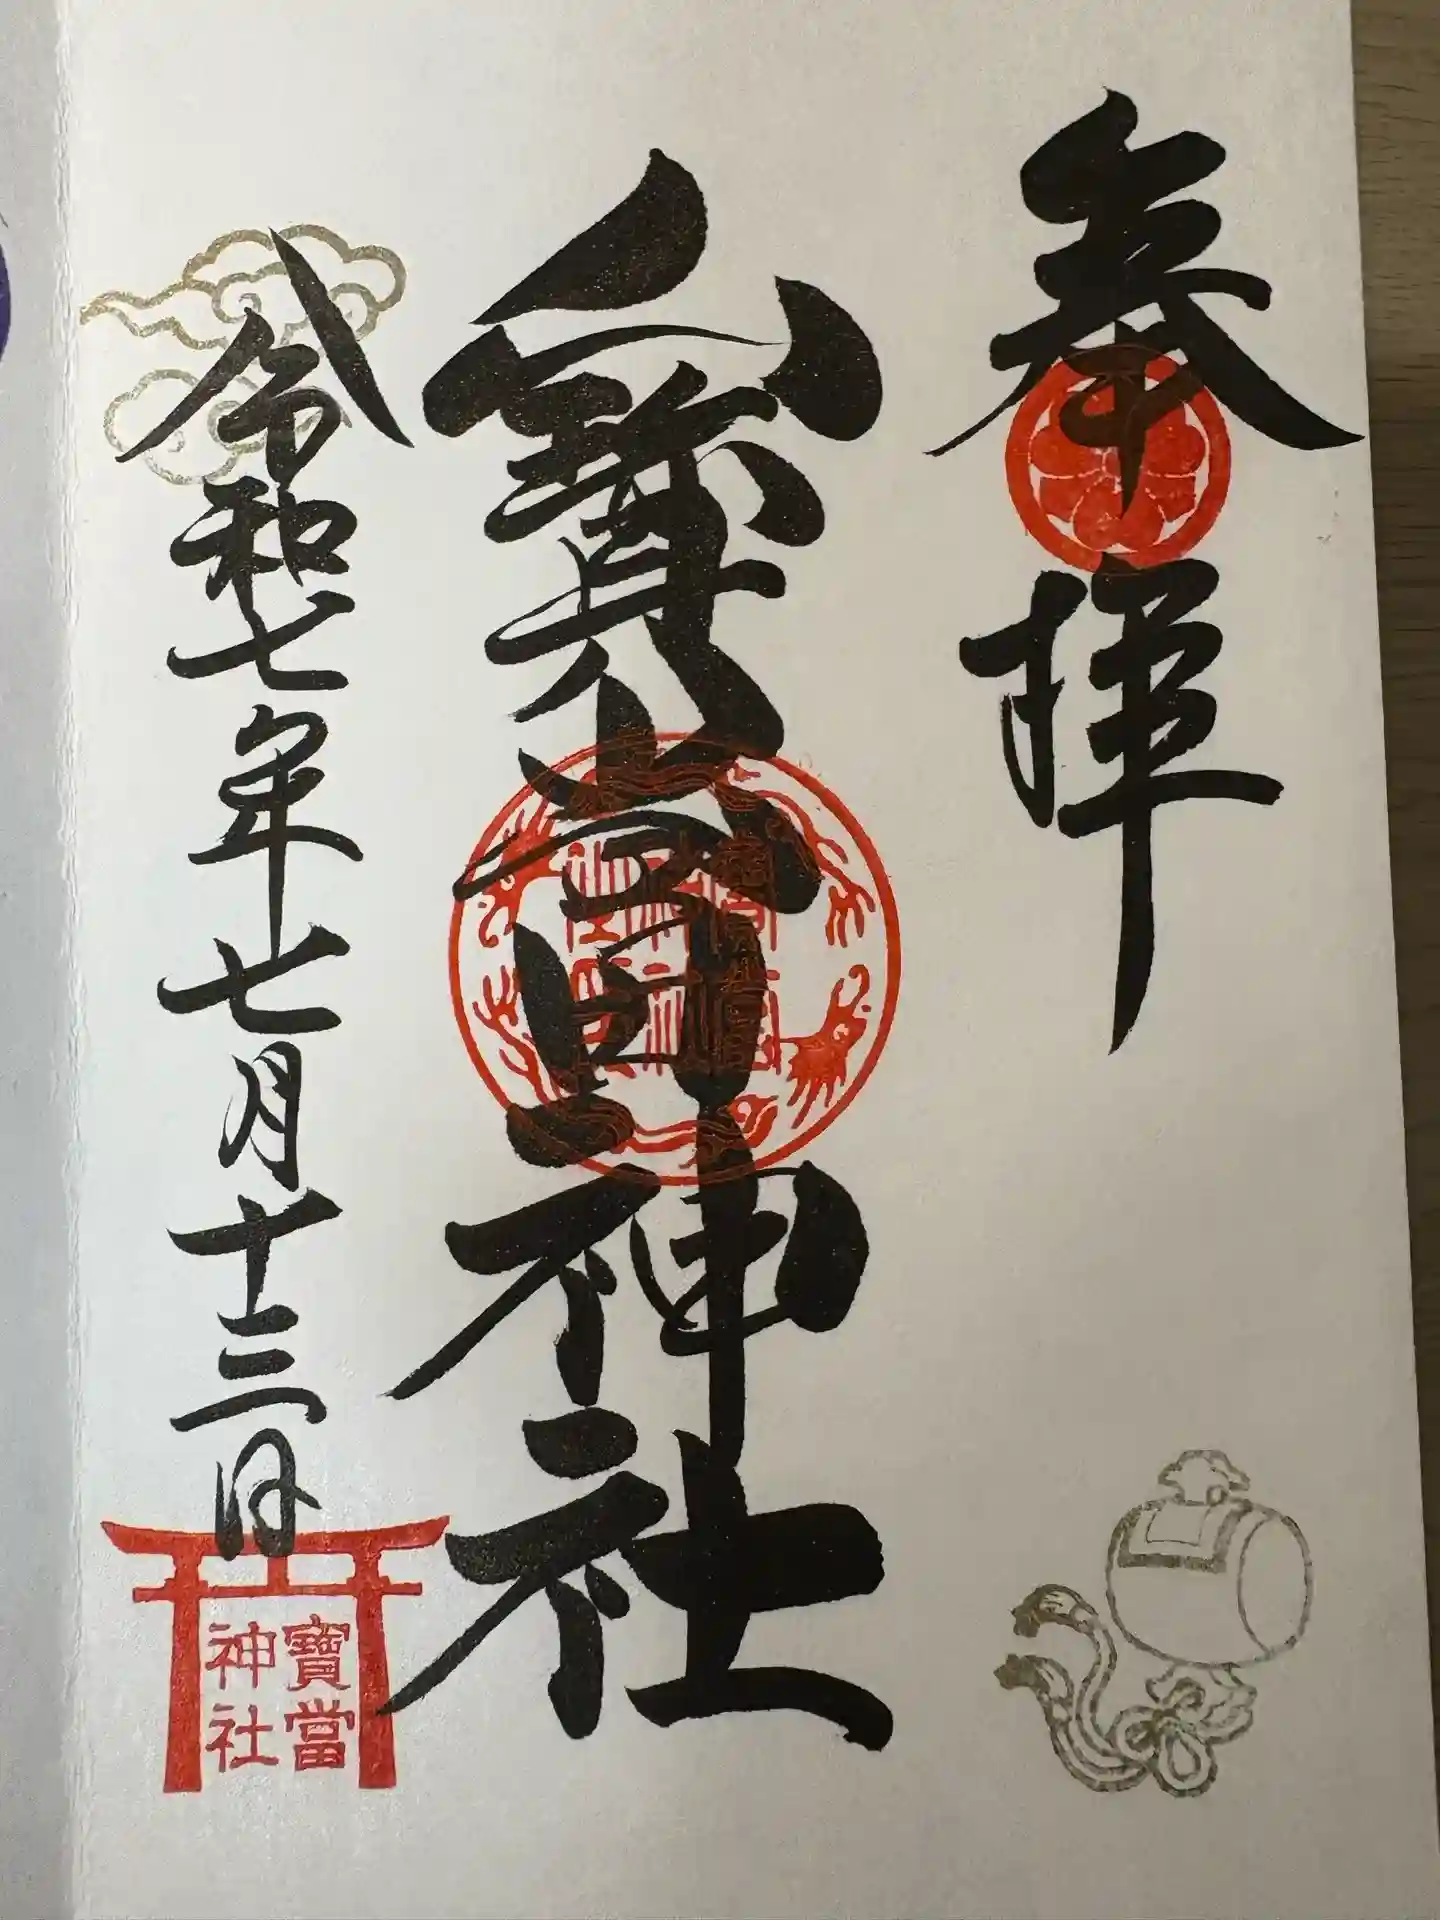 奉拝
寳當神社
令和七年七月十三日
寳當
神社